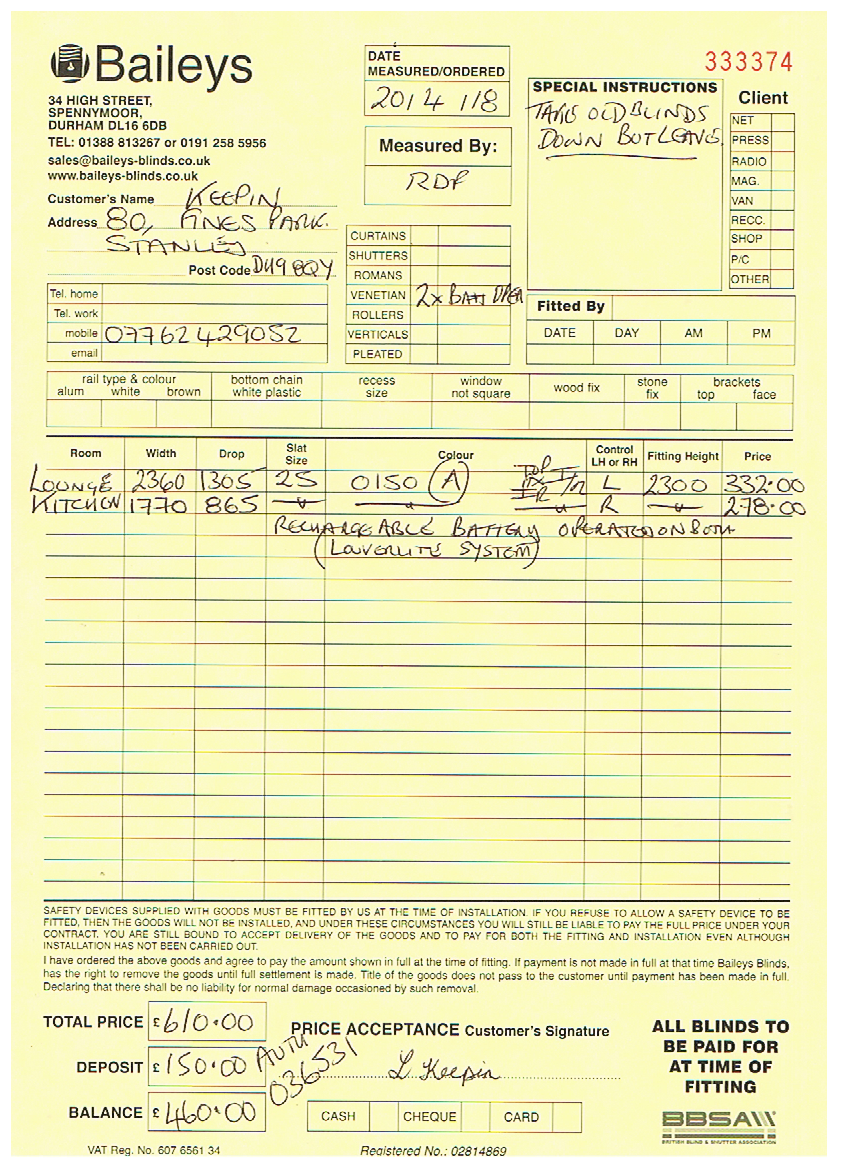 Baileys
34 HIGH STREET,
SPENNYMOOR,
DURHAM DL16 6DB
TEL: 01388 813267 or 0191 258 5956
sales@baileys-blinds.co.uk
www.baileys-blinds.co.uk
Customer's Name KEEPIN
Address 80, PINES PARK.
STANLEY
Post Code DH9 8QY
Tel. home
Tel. work
mobile 07762429052
email
DATE
MEASURED/ORDERED
20/4 1/8
Measured By:
RDP
CURTAINS
SHUTTERS
ROMANS
VENETIAN 2x BATT OPER
ROLLERS
VERTICALS
PLEATED
333374
SPECIAL INSTRUCTIONS
TAKE OLD BLINDS
DOWN BUT LEAVE
Client
NET
PRESS
RADIO
MAG.
VAN
RECC.
SHOP
P/C
OTHER
Fitted By
DATE DAY AM PM
rail type & colour
alum white brown
bottom chain
white plastic
recess
size
window
not square
wood fix
stone
fix
brackets
top face
Room Width Drop Slat Size Colour Control LH or RH Fitting Height Price
LOUNGE 2360 1305 25 0150 (A) L 2300 332.00
KITCHEN 1770 865 R 278.00
RECHARGEABLE BATTERY OPERATED ON BOTH
(LOUVERLITE SYSTEM)
SAFETY DEVICES SUPPLIED WITH GOODS MUST BE FITTED BY US AT THE TIME OF INSTALLATION. IF YOU REFUSE TO ALLOW A SAFETY DEVICE TO BE
FITTED, THEN THE GOODS WILL NOT BE INSTALLED, AND UNDER THESE CIRCUMSTANCES YOU WILL STILL BE LIABLE TO PAY THE FULL PRICE UNDER YOUR
CONTRACT. YOU ARE STILL BOUND TO ACCEPT DELIVERY OF THE GOODS AND TO PAY FOR BOTH THE FITTING AND INSTALLATION EVEN ALTHOUGH
INSTALLATION HAS NOT BEEN CARRIED OUT.
I have ordered the above goods and agree to pay the amount shown in full at the time of fitting. If payment is not made in full at that time Baileys Blinds,
has the right to remove the goods until full settlement is made. Title of the goods does not pass to the customer until payment has been made in full.
Declaring that there shall be no liability for normal damage occasioned by such removal.
TOTAL PRICE £610.00
DEPOSIT £150.00
BALANCE £460.00
AUTH
036531
PRICE ACCEPTANCE Customer's Signature
L Keepin
CASH CHEQUE CARD
ALL BLINDS TO
BE PAID FOR
AT TIME OF
FITTING
BBSA
BRITISH BLIND & SHUTTER ASSOCIATION
VAT Reg. No. 607 6561 34
Registered No.: 02814869